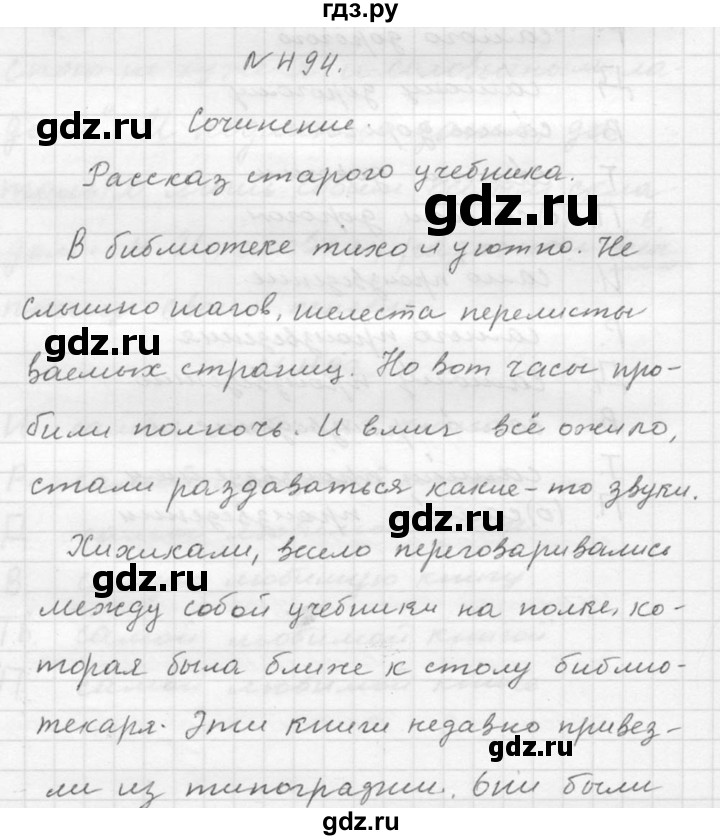 гдз.ру
N 494.
gdz.ru
Сочинение.
Рассказ старого учебника.
gdz.ru
В библиотеке тихо и уютно. Не
слышно шагов, шелеста перелисты
gdz.ru
ваемых страниц. Но вот часы про-
били полночь. И вмиг всё ожило,
стали раздаваться какие-то звуки.
gdz.ru
Хихикали, весело переговаривались
gdz.ru
между собой учебники на полке, ко-
торая была ближе к столу библио-
текаря. Эти книги недавно привез-
gdz.ru
ли из типографии. Они были
gdz.ru